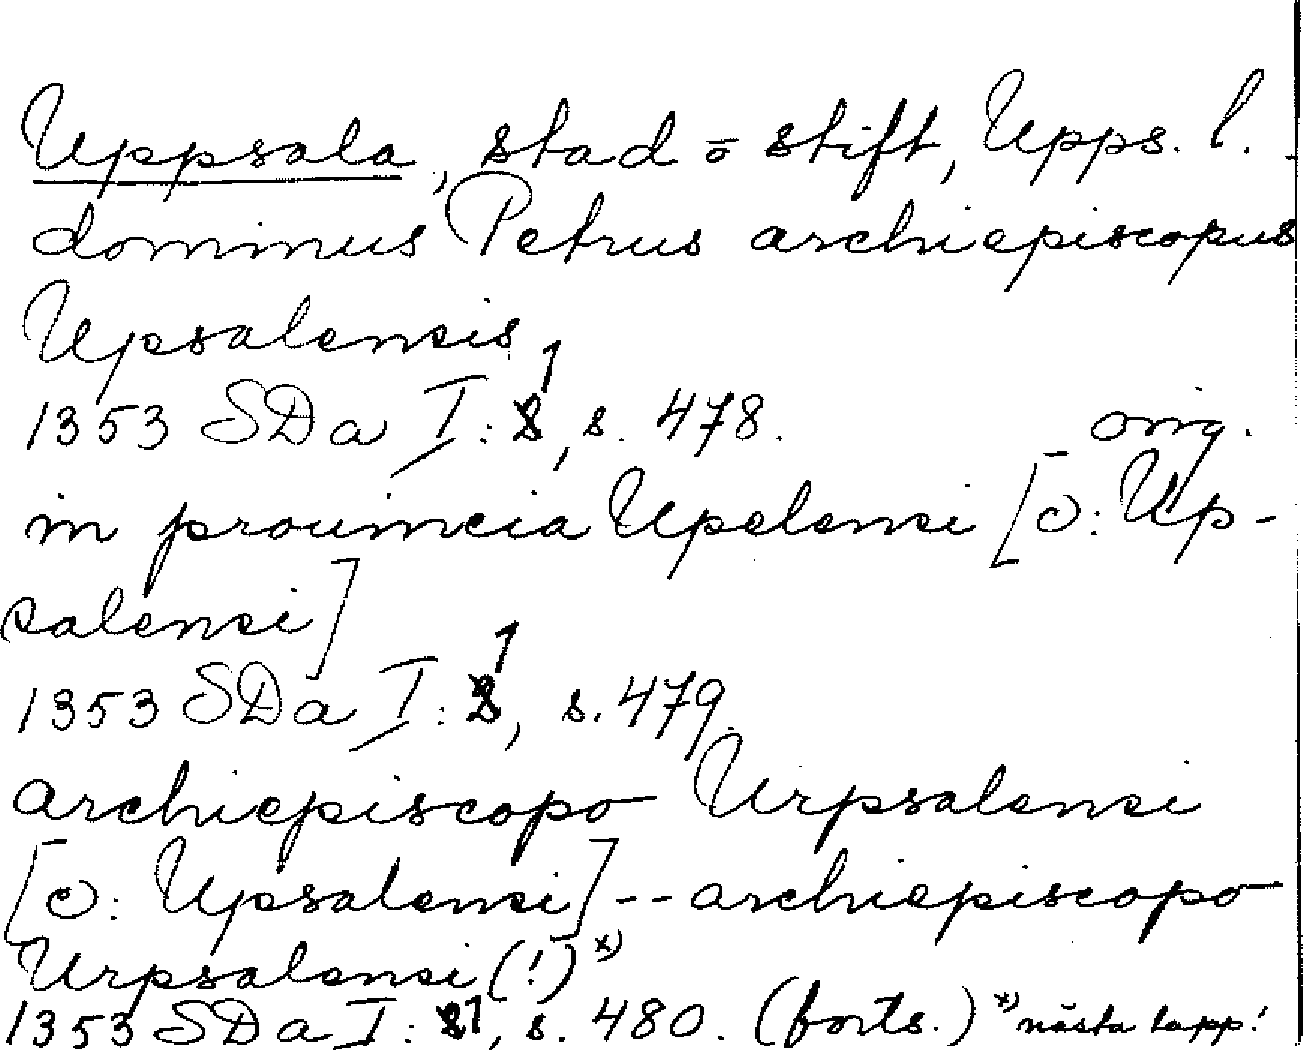 Uppsala, stad o stift, Upps. l.
dominus Petrus archiepiscopus
Upsalensis
1353 SDa I: 1, s. 478. orig.
in prouincia Upelensi [ɔ: Up-
salensi]
1353 SDa I: 1, s. 479.
archiepiscopo Urpsalensi
[ɔ: Upsalensi] -- archiepiscopo
Urpsalensi (!) x)
1353 SDa I: 1, s. 480. (forts.) x) nästa lapp!